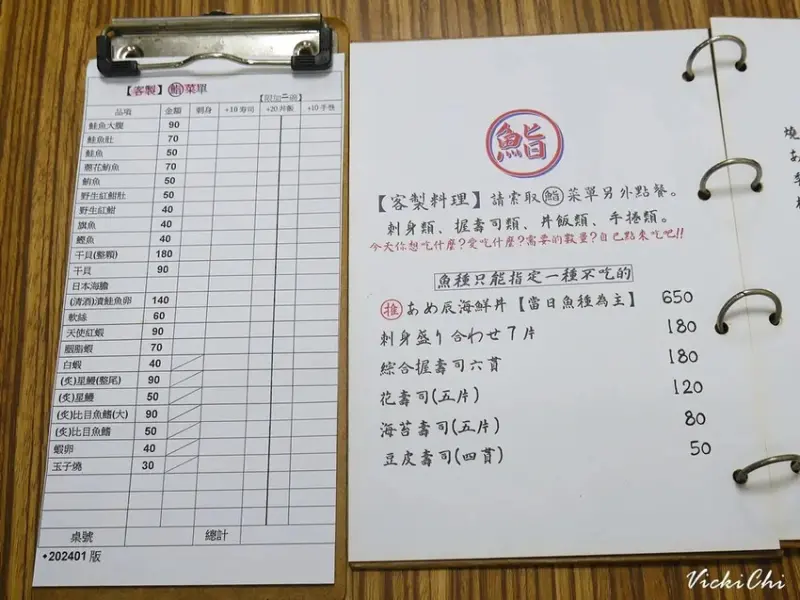 【客製】鮨菜單
品項 金額 刺身 +10壽司 +20丼飯 +10手卷
鮭魚大腹 90
鮭魚肚 70
鮭魚 50
鮪魚 50
野生紅魽肚 50
野生紅魽 40
旗魚 40
鰹魚 40
干貝(整顆) 180
干貝 90
日本海膽
(清酒)漬鮭魚卵 140
軟絲 60
天使紅蝦 90
胭脂蝦 70
白蝦 40
(炙)星鰻(整尾) 90
(炙)星鰻 50
(炙)比目魚鰭(大) 90
(炙)比目魚鰭 50
蝦卵 40
玉子燒 30
桌號 總計
202401 版
鮨
【客製料理】請索取鮨菜單另外點餐。
刺身類、握壽司類、丼飯類、手捲類。
今天你想吃什麼?愛吃什麼?需要的數量?自己點來吃吧!!
魚種只能指定一種不吃的
推 あめ辰海鮮丼【當日魚種為主】 650
刺身盛り合わせ7片 180
綜合握壽司六貫 180
花壽司(五片) 120
海苔壽司(五片) 80
豆皮壽司(四貫) 50
VickiChi